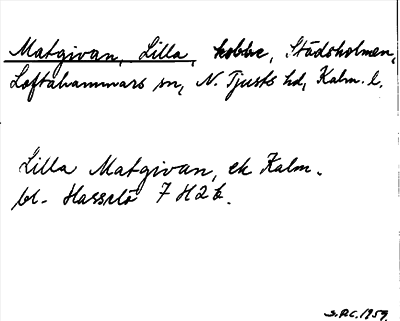 Matgivan, Lilla, kobbe, Städsholmen,
Loftahammars sn, N. Tjusts hd, Kalm. l.
Lilla Matgivan, ek Kalm.
bl. Hasselö 7 H 2 b.
S.P.C. 1959.